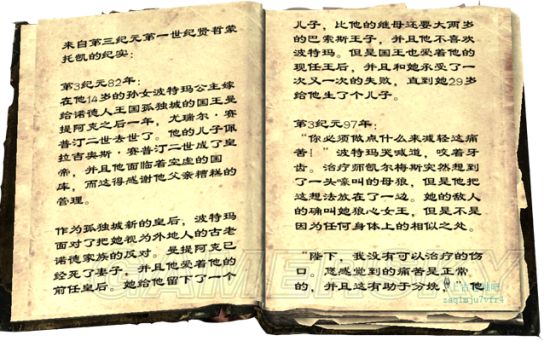 来自第三纪元第一世纪贤哲蒙
托凯的纪实：
第3纪元82年：
在他14岁的孙女波特玛公主嫁
给诺德人王国孤独城的国王曼
提阿克之后一年，尤瑞尔·赛
普汀二世去世了。他的儿子佩
拉吉奥斯·赛普汀二世成了皇
帝，并且他面临着空虚的国
库，而这得感谢他父亲糟糕的
管理。
作为孤独城新的皇后，波特玛
面对了把她视为外地人的古老
诺德家族的反对。曼提阿克已
经死了妻子，并且他爱着他的
前任皇后。她给他留下了一个
儿子，比他的继母还要大两岁
的巴索斯王子，并且他不喜欢
波特玛。但是国王也爱着他的
现任王后，并且和她承受了一
次又一次的失败，直到她29岁
给他生了个儿子。
第3纪元97年：
“你必须做点什么来减轻这痛
苦！”波特玛哭喊道，咬着牙
齿。治疗师凯尔梅斯突然想到
了一头嚎叫的母狼，但是他把
这想法放在了一边。她的敌人
的确叫她狼心女王，但是不是
因为任何身体上的相似之处。
“陛下，我没有可以治疗的伤
口。您感觉到的痛苦是正常
的，并且这有助于分娩。”他
zaqimju7vfr4